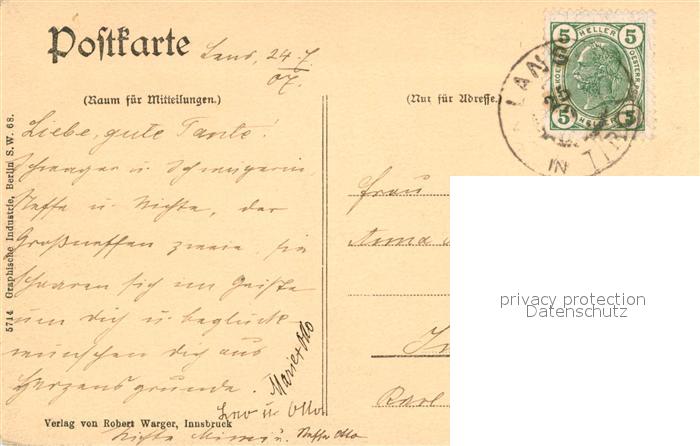 Postkarte
Lans, 24/7.
07.
(Raum für Mitteilungen.)
(Nur für Adresse.)
5 HELLER 5
5 HELLER 5
LANS
IN TIROL
Liebe, gute Tante!
Schwager u. Schwägerin,
Neffe u. Nichte, der
Großneffen zweie, sie
schaaren sich im Geiste
um Dich u. beglück-
wünschen Dich aus
Herzensgrunde.
Marie Otto
Leo u. Otto
Nichte Mimi u. Neffe Otto
Frau
Anna
Karl
privacy protection
Datenschutz
5714 Graphische Industrie, Berlin S.W. 68.
Verlag von Robert Warger, Innsbruck